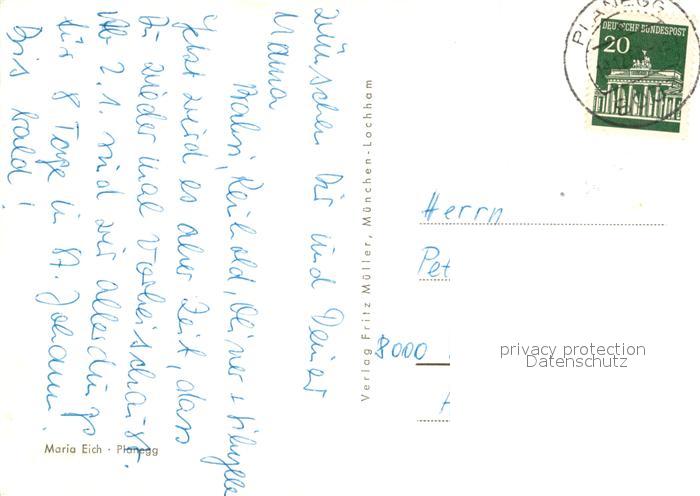 wünschen Dir und Deiner
Mama
Reinhold, Heiner +
Jetzt wird es aber Zeit, dass
Du wieder mal vorbeischaust.
Ab 2.1. sind wir allerdings
für 8 Tage in St. Johann.
Bis bald!
Maria Eich · Planegg
Verlag Fritz Müller, München-Lochham
PLANEGG
DEUTSCHE BUNDESPOST
20
Herrn
Pet
8000
privacy protection
Datenschutz